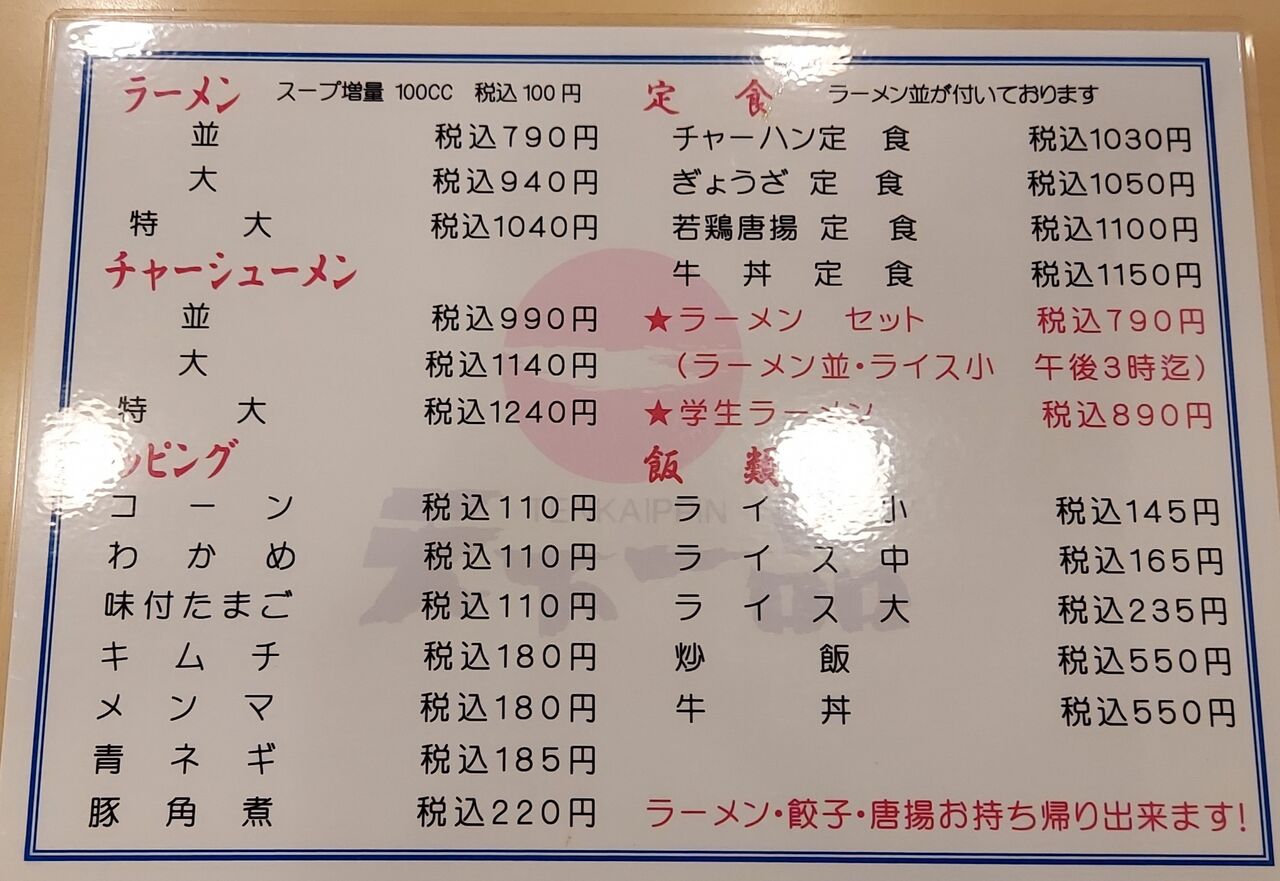 ラーメン スープ増量 100CC 税込100円
並 税込790円
大 税込940円
特大 税込1040円
チャーシューメン
並 税込990円
大 税込1140円
特大 税込1240円
ッピング
コーン 税込110円
わかめ 税込110円
味付たまご 税込110円
キムチ 税込180円
メンマ 税込180円
青ネギ 税込185円
豚角煮 税込220円
定食 ラーメン並が付いております
チャーハン定食 税込1030円
ぎょうざ定食 税込1050円
若鶏唐揚定食 税込1100円
牛丼定食 税込1150円
★ラーメン セット 税込790円
(ラーメン並・ライス小 午後3時迄)
★学生ラーメン 税込890円
飯類
ライ 小 税込145円
ライス中 税込165円
ライス大 税込235円
炒飯 税込550円
牛丼 税込550円
ラーメン・餃子・唐揚お持ち帰り出来ます!
天下一品